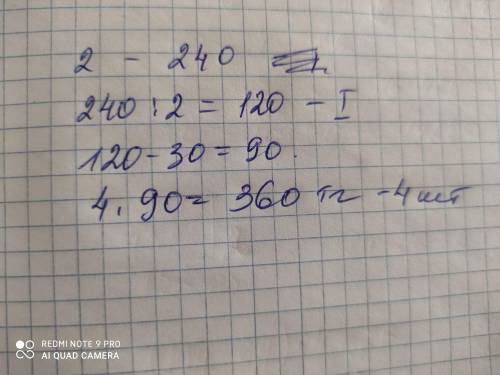 2 - 240
240 : 2 = 120 - I
120 - 30 = 90.
4. 90 = 360 тг - 4 шт
REDMI NOTE 9 PRO
AI QUAD CAMERA